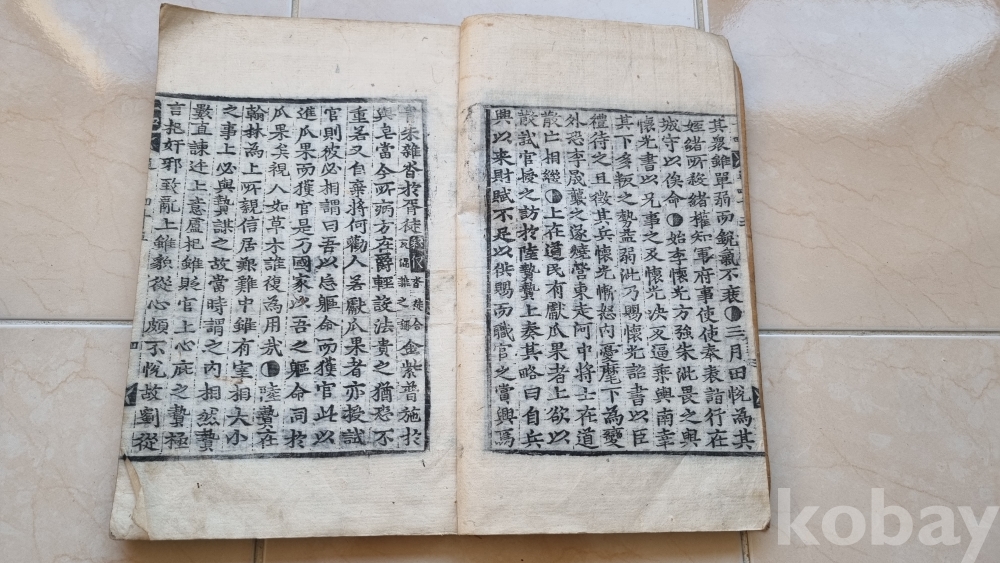 其衆雖單弱而銳氣不衰●三月田悅為其
姪緒所殺緒權知軍府事使使奉表詣行在
城守以俟命●始李懷光方強朱泚畏之與
懷光書以兄事之及懷光決反逼乘輿南幸
其下多叛之勢益弱泚乃賜懷光詔書以臣
禮待之且徵其兵懷光慚怒內憂麾下為變
外恐李晟襲之遂燒營東走河中將士在道
散亡相繼●上在道民有獻瓜果者上欲以
散試官授之訪於陸贄贄上奏其略曰自兵
興以來財賦不足以供賜而職官之賞興焉
青朱雜沓於胥徒金紫普施於
輿皂當今所病方在爵輕設法貴之猶恐不
重若又自棄將何勸人若獻瓜果者亦授試
官則彼必相謂曰吾以忘軀命而獲官此以
進瓜果而獲官是乃國家以吾之軀命同於
瓜果矣視人如草木誰復為用哉●陸贄在
翰林為上所親信居艱難中雖有宰相大小
之事上必與贄謀之故當時謂之內相然贄
數直諫迕上意盧杞雖貶官上心庇之贄極
言杞奸邪致亂上雖貌從心頗不悅故劉從
kobay